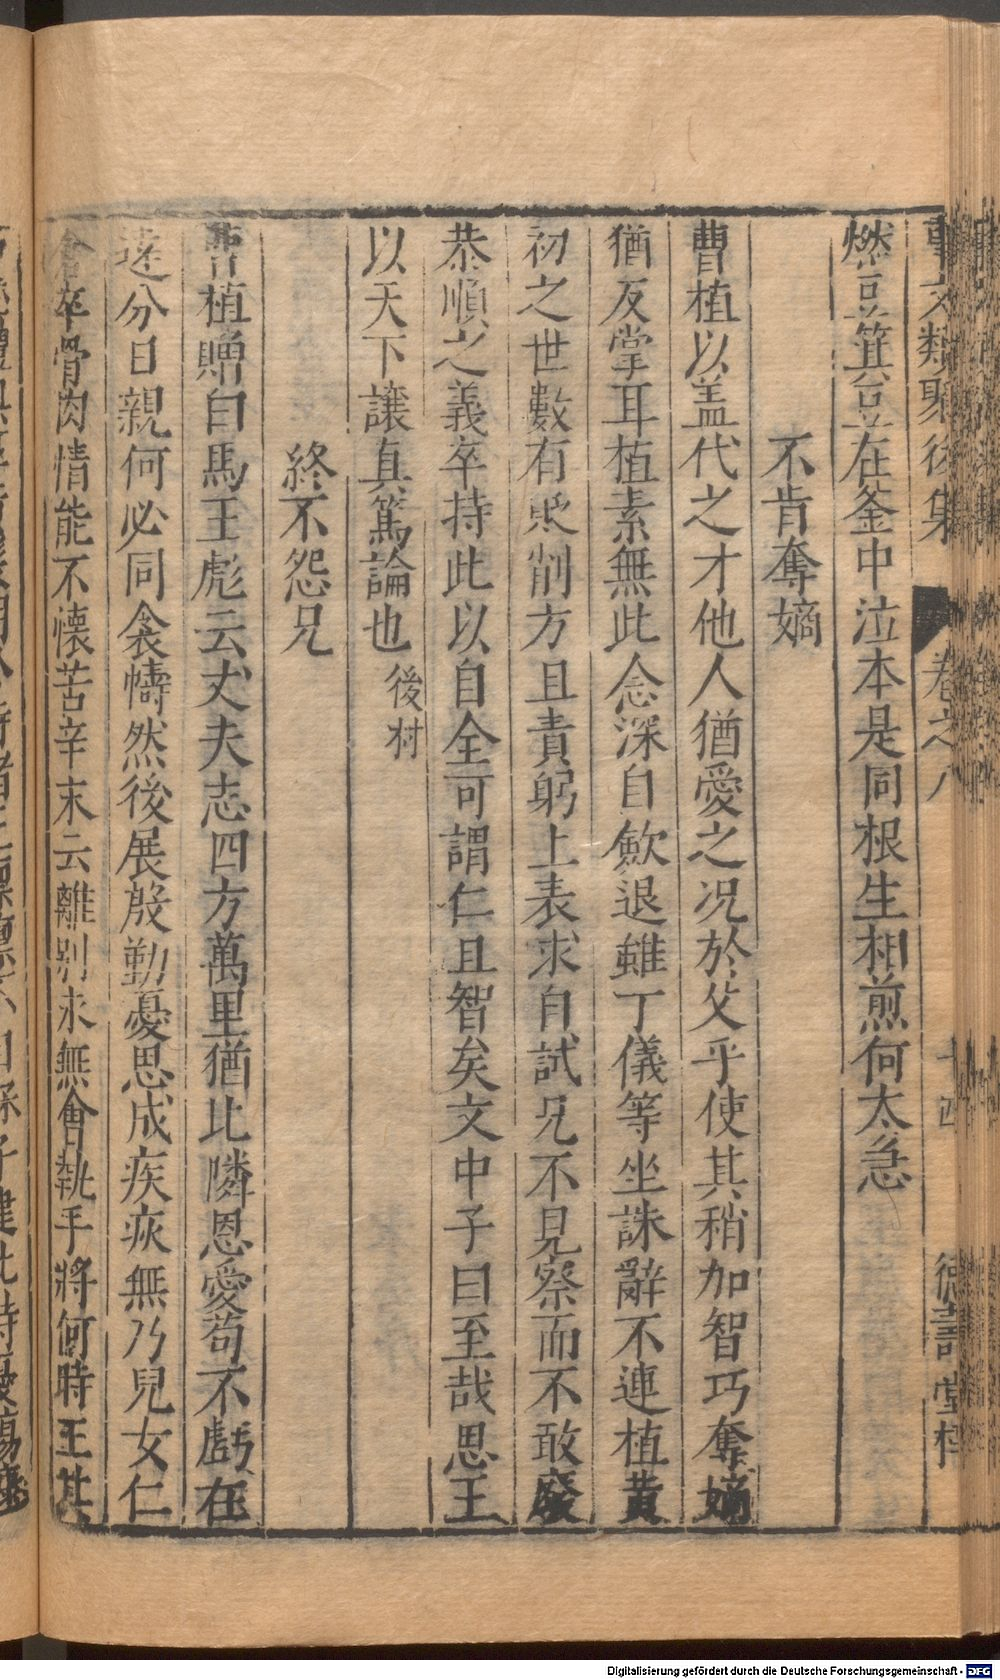 事文類聚後集 卷之八 十四 德壽堂梓
燃豆萁豆在釜中泣本是同根生相煎何太急
不肯奪嫡
曹植以盖代之才他人猶愛之况於父乎使其稍加智巧奪嫡
猶反掌耳植素無此念深自歛退雖丁儀等坐誅辭不連植黄
初之世數有貶削方且責躬上表求自試兄不見察而不敢廢
恭順之義卒持此以自全可謂仁且智矣文中子曰至哉思王
以天下讓真篤論也 後村
終不怨兄
曹植贈白馬王彪云丈夫志四方萬里猶比隣恩愛苟不虧在
遠分日親何必同衾幬然後展慇勤憂思成疾疢無乃兒女仁
倉卒骨肉情能不懷苦辛末云離别永無會執手將何時王其
Digitalisierung gefördert durch die Deutsche Forschungsgemeinschaft - DFG